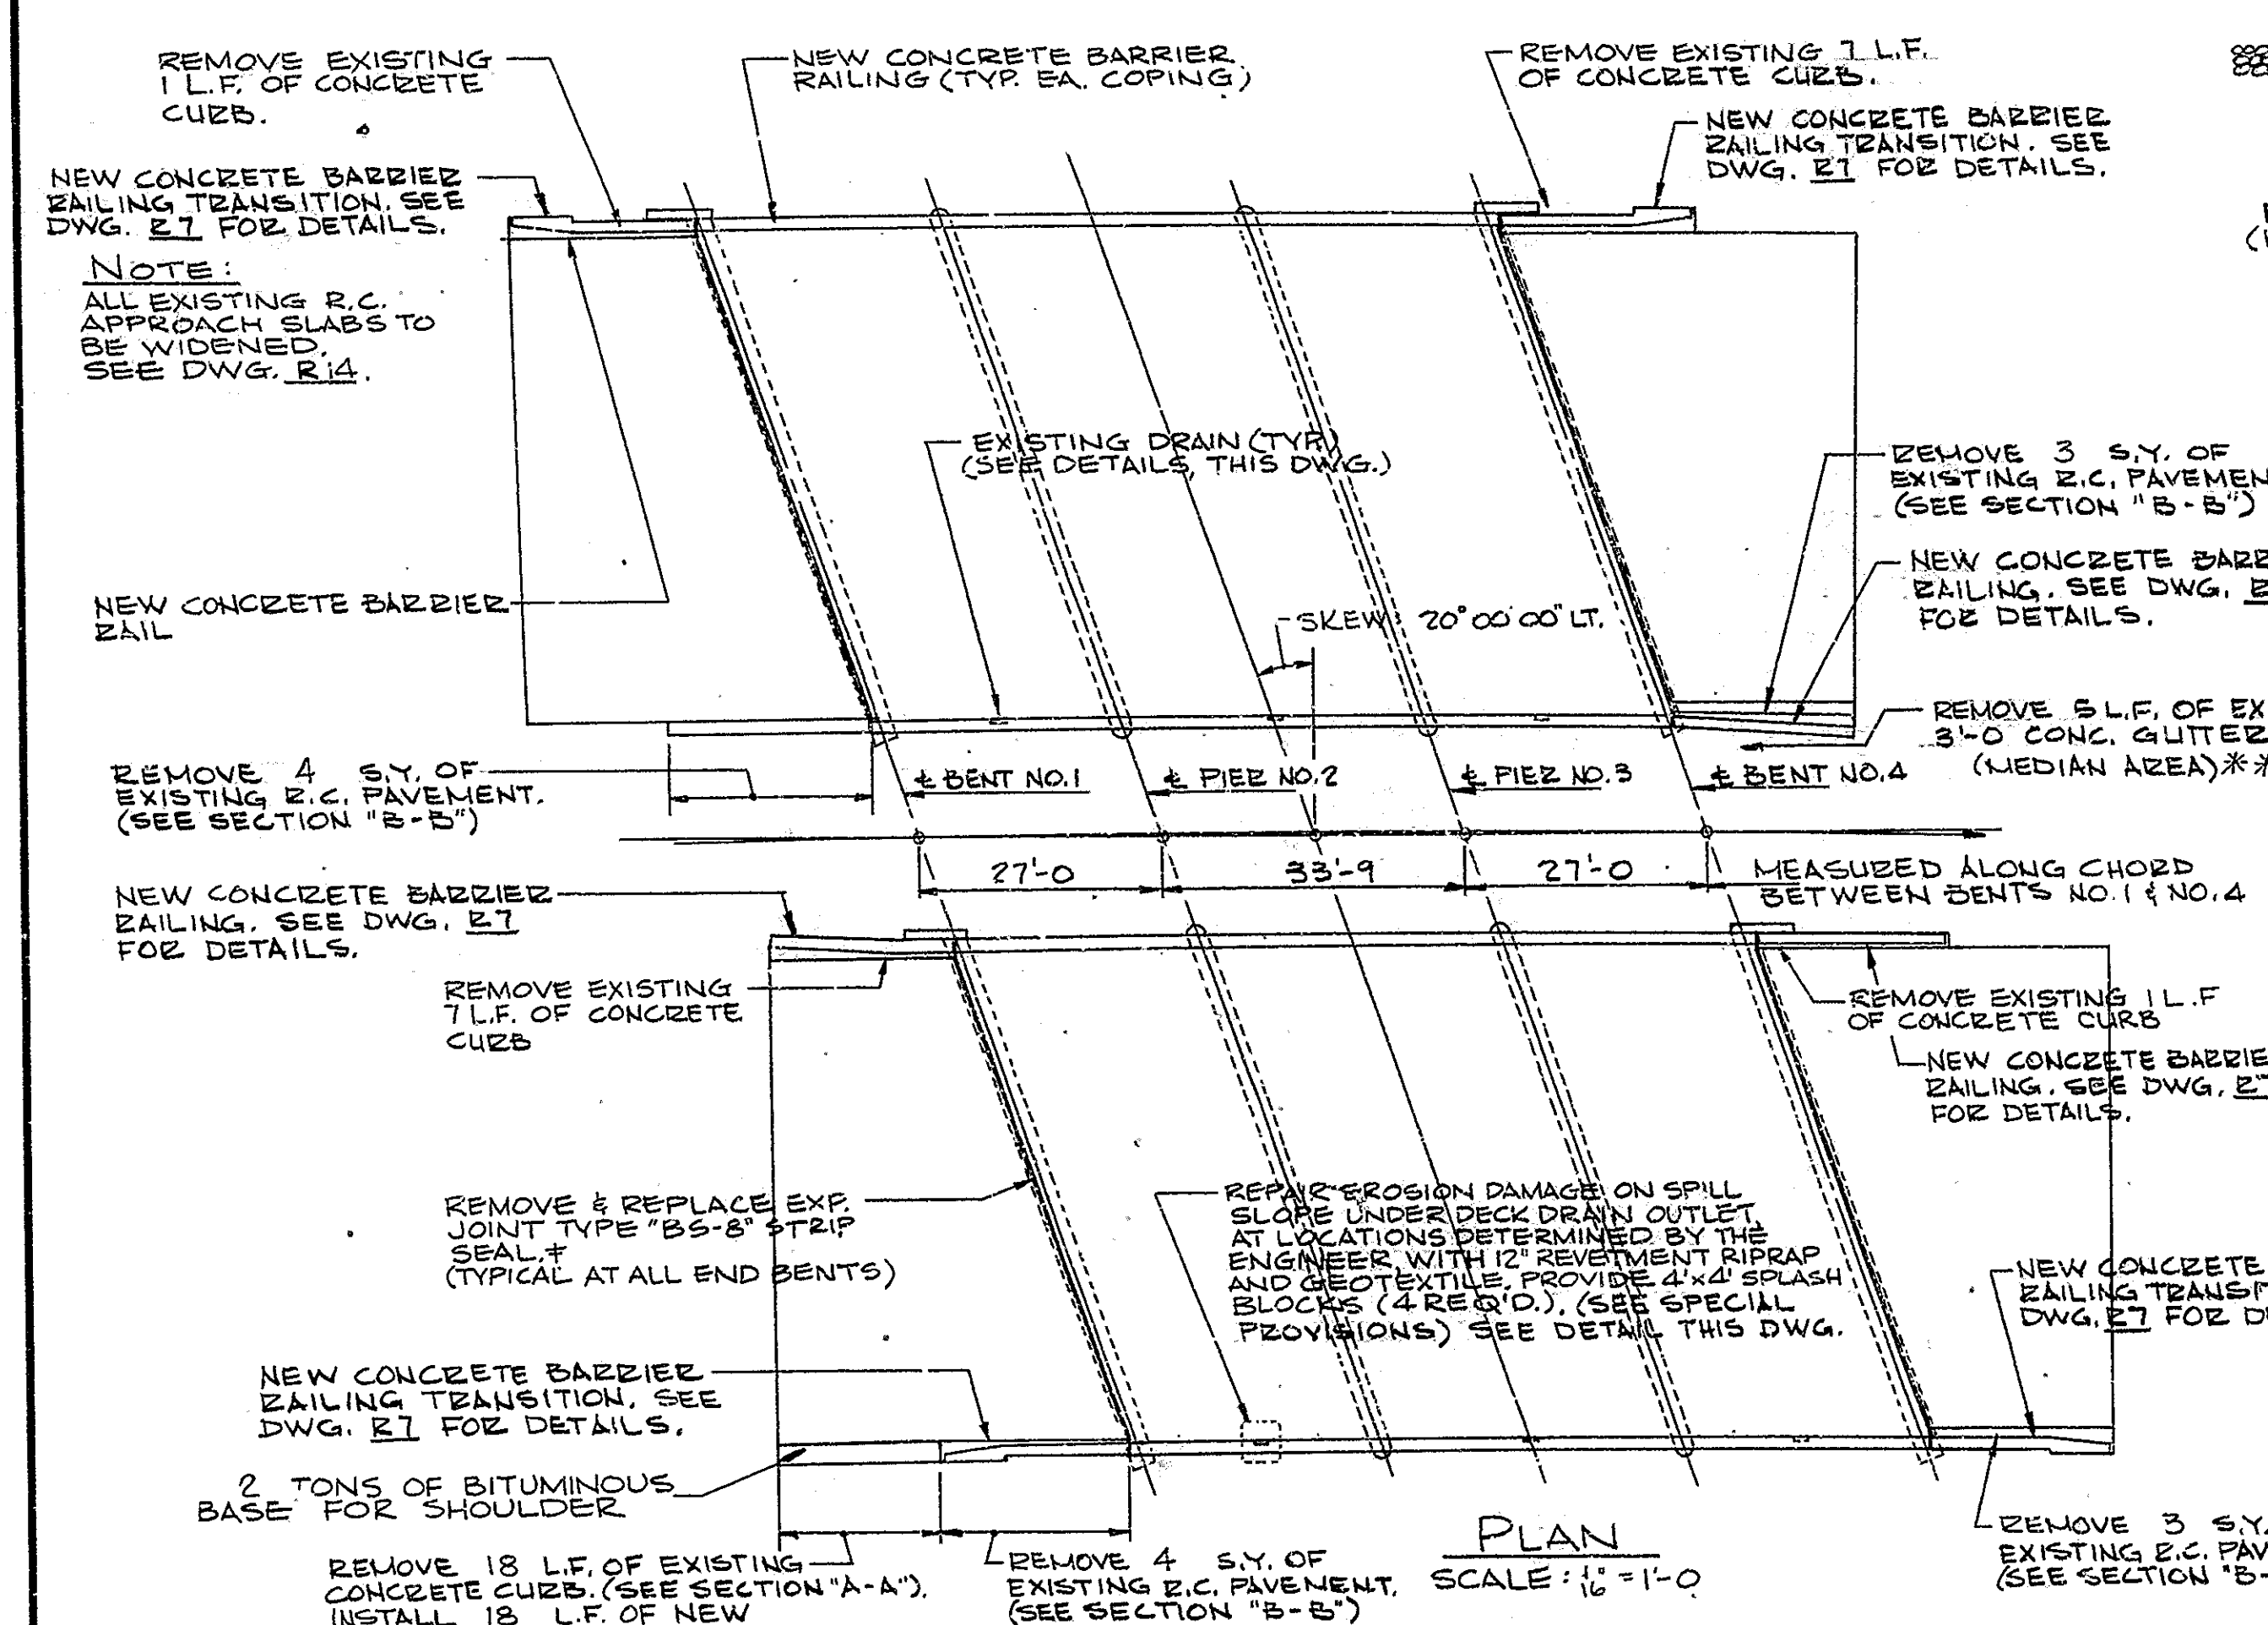 REMOVE EXISTING
1 L.F. OF CONCRETE
CURB.
NEW CONCRETE BARRIER
RAILING (TYP. EA. COPING)
REMOVE EXISTING 7 L.F.
OF CONCRETE CURB.
NEW CONCRETE BARRIER
RAILING TRANSITION. SEE
DWG. R7 FOR DETAILS.
NEW CONCRETE BARRIER
RAILING TRANSITION. SEE
DWG. R7 FOR DETAILS.
NOTE:
ALL EXISTING R.C.
APPROACH SLABS TO
BE WIDENED.
SEE DWG. R14.
EXISTING DRAIN (TYP.)
(SEE DETAILS, THIS DWG.)
REMOVE 3 S.Y. OF
EXISTING R.C. PAVEMEN
(SEE SECTION "B-B")
NEW CONCRETE BARR
RAILING. SEE DWG. R
FOR DETAILS.
NEW CONCRETE BARRIER
RAIL
SKEW 20° 00' 00" LT.
REMOVE 5 L.F. OF EX
3'-0 CONC. GUTTER
(MEDIAN AREA)**
REMOVE 4 S.Y. OF
EXISTING R.C. PAVEMENT.
(SEE SECTION "B-B")
℄ BENT NO.1
℄ PIER NO.2
℄ PIER NO.3
℄ BENT NO.4
27'-0
33'-9
27'-0
MEASURED ALONG CHORD
BETWEEN BENTS NO.1 & NO.4
NEW CONCRETE BARRIER
RAILING. SEE DWG. R7
FOR DETAILS.
REMOVE EXISTING
7 L.F. OF CONCRETE
CURB
REMOVE EXISTING 1 L.F
OF CONCRETE CURB
NEW CONCRETE BARRIE
RAILING. SEE DWG. R7
FOR DETAILS.
REMOVE & REPLACE EXP.
JOINT TYPE "BS-8" STRIP
SEAL.‡
(TYPICAL AT ALL END BENTS)
REPAIR EROSION DAMAGE ON SPILL
SLOPE UNDER DECK DRAIN OUTLET,
AT LOCATIONS DETERMINED BY THE
ENGINEER, WITH 12" REVETMENT RIPRAP
AND GEOTEXTILE. PROVIDE 4'x4' SPLASH
BLOCKS (4 REQ'D.). (SEE SPECIAL
PROVISIONS) SEE DETAIL THIS DWG.
NEW CONCRETE
RAILING TRANSIT
DWG. R7 FOR D
NEW CONCRETE BARRIER
RAILING TRANSITION. SEE
DWG. R7 FOR DETAILS.
2 TONS OF BITUMINOUS
BASE FOR SHOULDER
REMOVE 18 L.F. OF EXISTING
CONCRETE CURB. (SEE SECTION "A-A").
INSTALL 18 L.F. OF NEW
REMOVE 4 S.Y. OF
EXISTING R.C. PAVEMENT.
(SEE SECTION "B-B")
PLAN
SCALE: 1/16" = 1'-0
REMOVE 3 S.Y.
EXISTING R.C. PAV
(SEE SECTION "B-